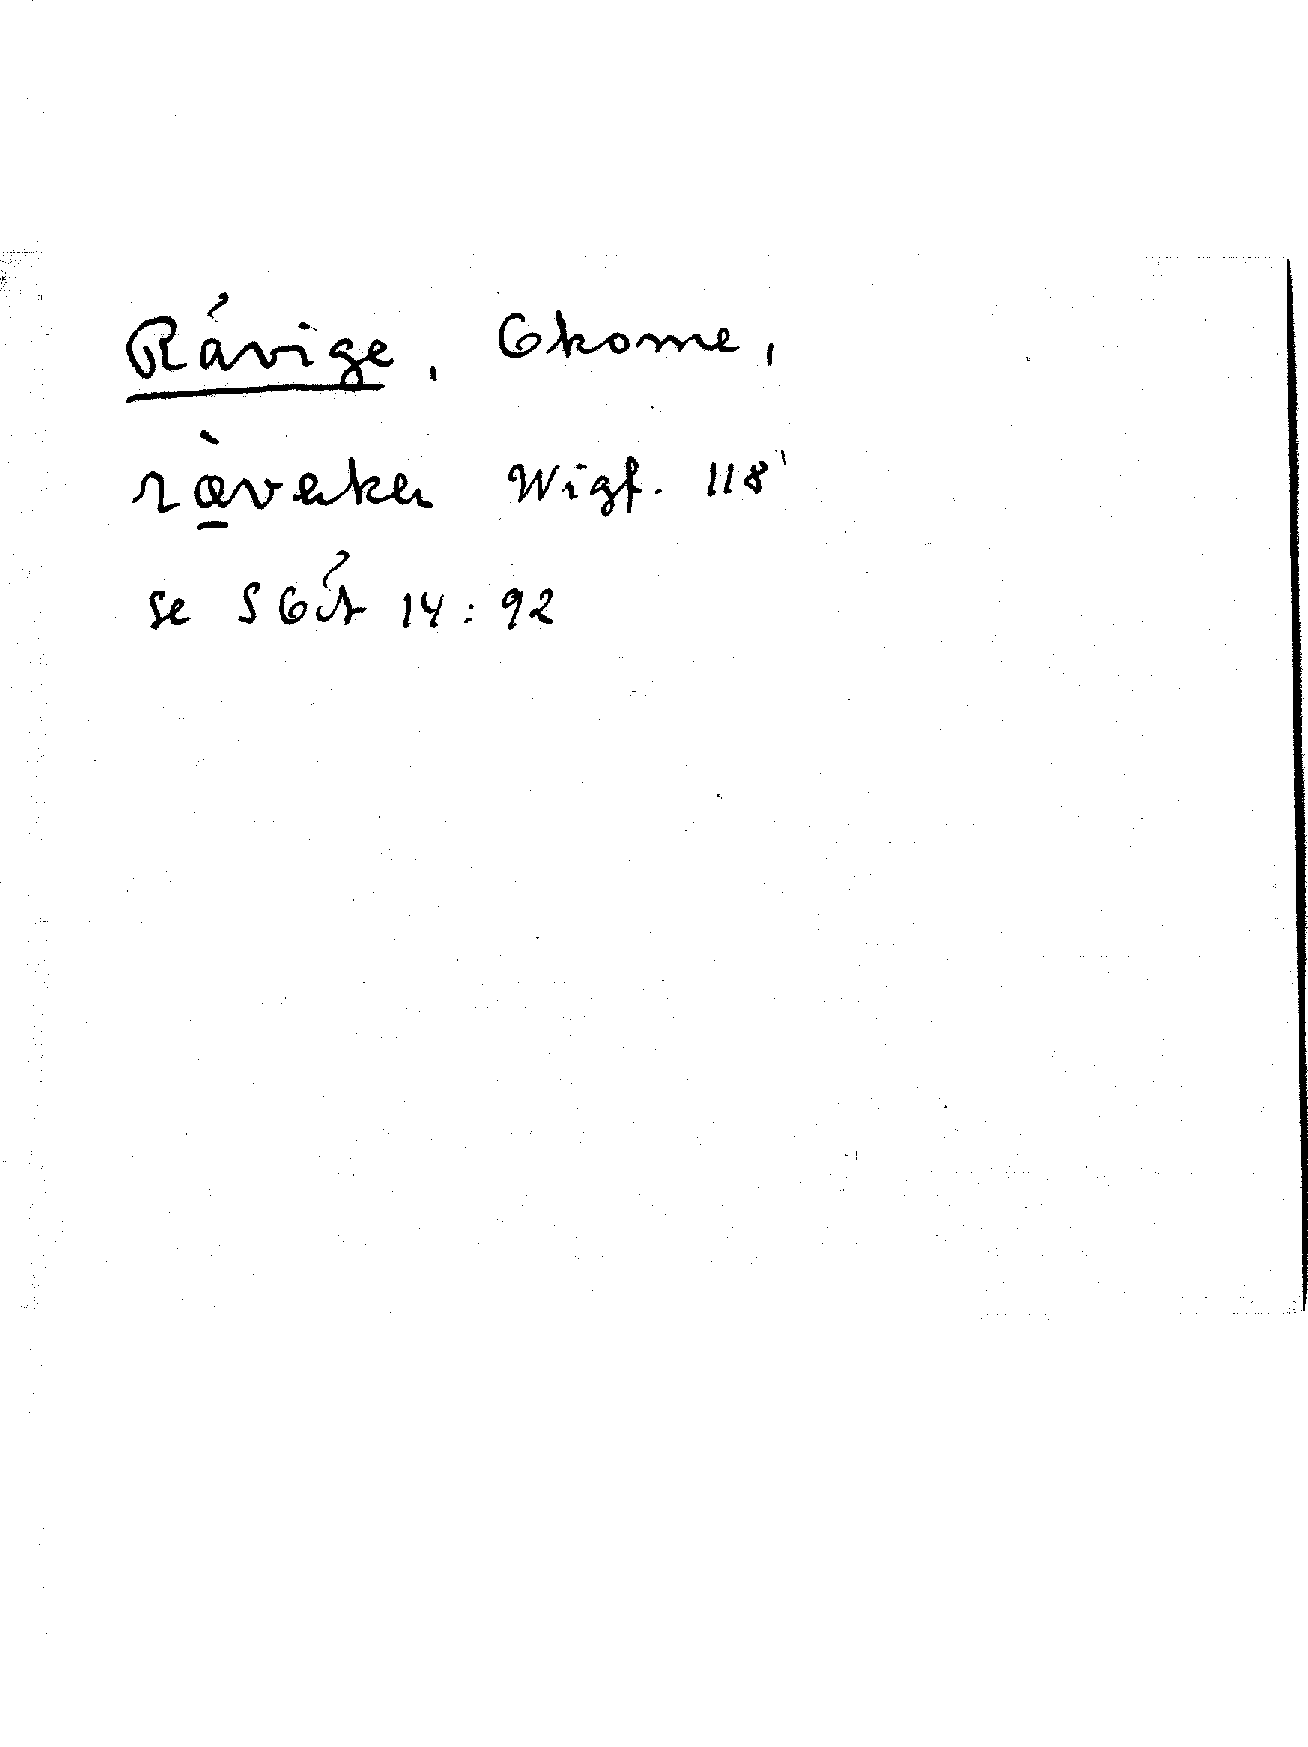 Råvige. Gkome,
rà̱veken Wigf. 118
se SGÅ 14:92